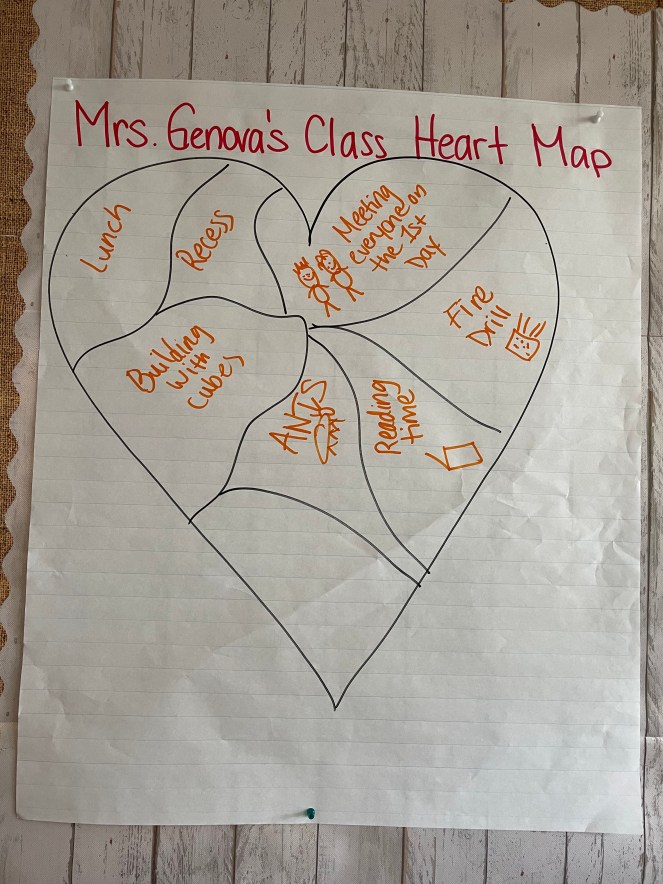 Mrs. Genova's Class Heart Map
Lunch
Recess
Meeting
everyone on
the 1st
Day
Fire
Drill
Building
with
cubes
ANTS
Reading
time